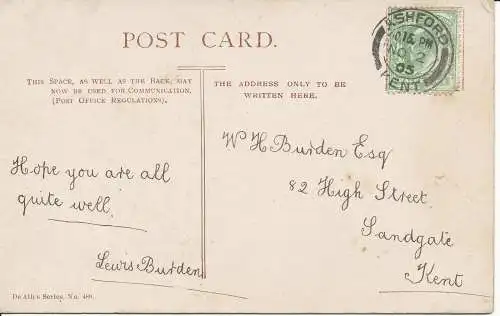 POST CARD.
THIS SPACE, AS WELL AS THE BACK, MAY
NOW BE USED FOR COMMUNICATION.
(POST OFFICE REGULATIONS).
THE ADDRESS ONLY TO BE
WRITTEN HERE.
ASHFORD
10 15 PM
NO 2
05
KENT
Hope you are all
quite well.
Lewis Burden
W H Burden Esq
82 High Street
Sandgate
Kent
Series, No. 480.